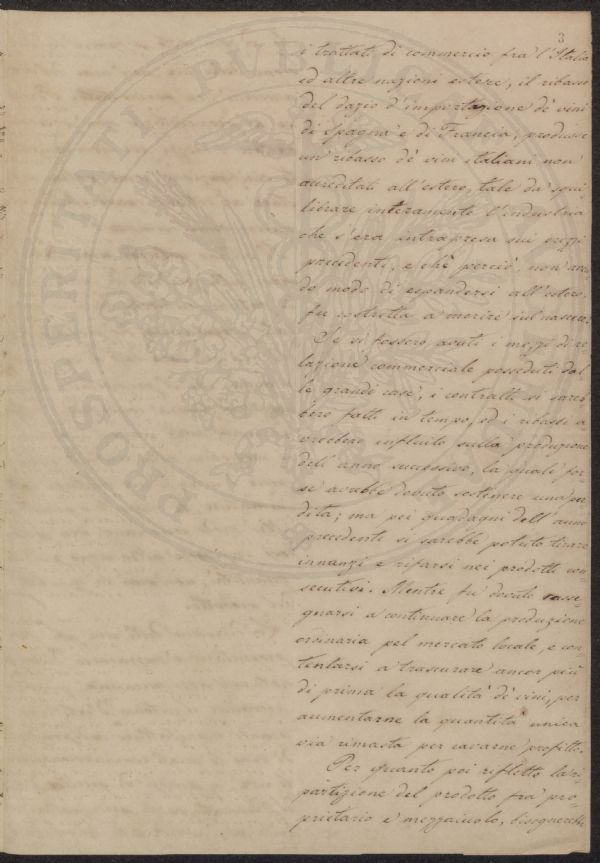 3
i trattati di commercio fra l'Italia
ed altre nazioni estere, il ribasso
del dazio d'importazione de' vini
di Spagna e di Francia, produsse
un ribasso de' vini italiani non
accreditati all'estero, tale da squi-
librare interamente l'industria
che s'era intrapresa sui prezzi
precedenti, e che perciò, non aven
do modo di espandersi all'estero,
fu costretta a morire sul nascere.
Se si fossero avuti i mezzi di re
lazione commerciale posseduti dal-
le grandi case, i contratti si sareb
bero fatti in tempo, ed i ribassi a
vrebbero influito sulla produzione
dell'anno successivo, la quale for-
se avrebbe dovuto sostenere una per
dita; ma pei guadagni dell'anno
precedenti si sarebbe potuto tirare
innanzi e rifarsi nei prodotti con-
secutivi. Mentre fu dovuto rasse-
gnarsi a continuare la produzione
ordinaria pel mercato locale, e con-
tentarsi a trascurare ancor più
di prima la qualità de' vini, per
aumentarne la quantità unica
via rimasta per cavarne profitto.
Per quanto poi rifletto la ri-
partizione del prodotto fra pro-
prietario e mezzaiuolo, bisognerebbe
PROSPERITATI PVBL